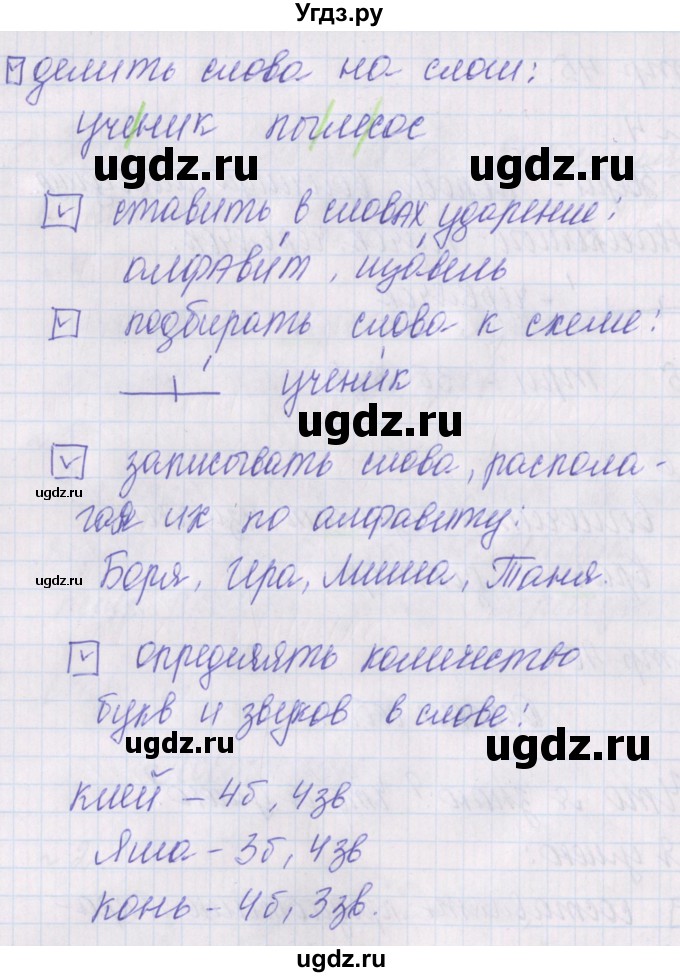 Угдз.ру
делить слова на слоги:
ученик пылесос
ugdz.ru ugdz.ru
ставить в словах ударение:
алфавит, щавель
ugdz.ru
подбирать слова к схеме:
ученик
ugdz.ru
записывать слова, распола-
ugdz.ru
гая их по алфавиту:
ugdz.ru
Боря, Гера, Миша, Таня.
ugdz.ru
определять количество
букв и звуков в слове:
ugdz.ru ugdz.ru
клей – 4б, 4зв
Яша – 3б, 4зв
конь – 4б, 3зв.
ugdz.ru